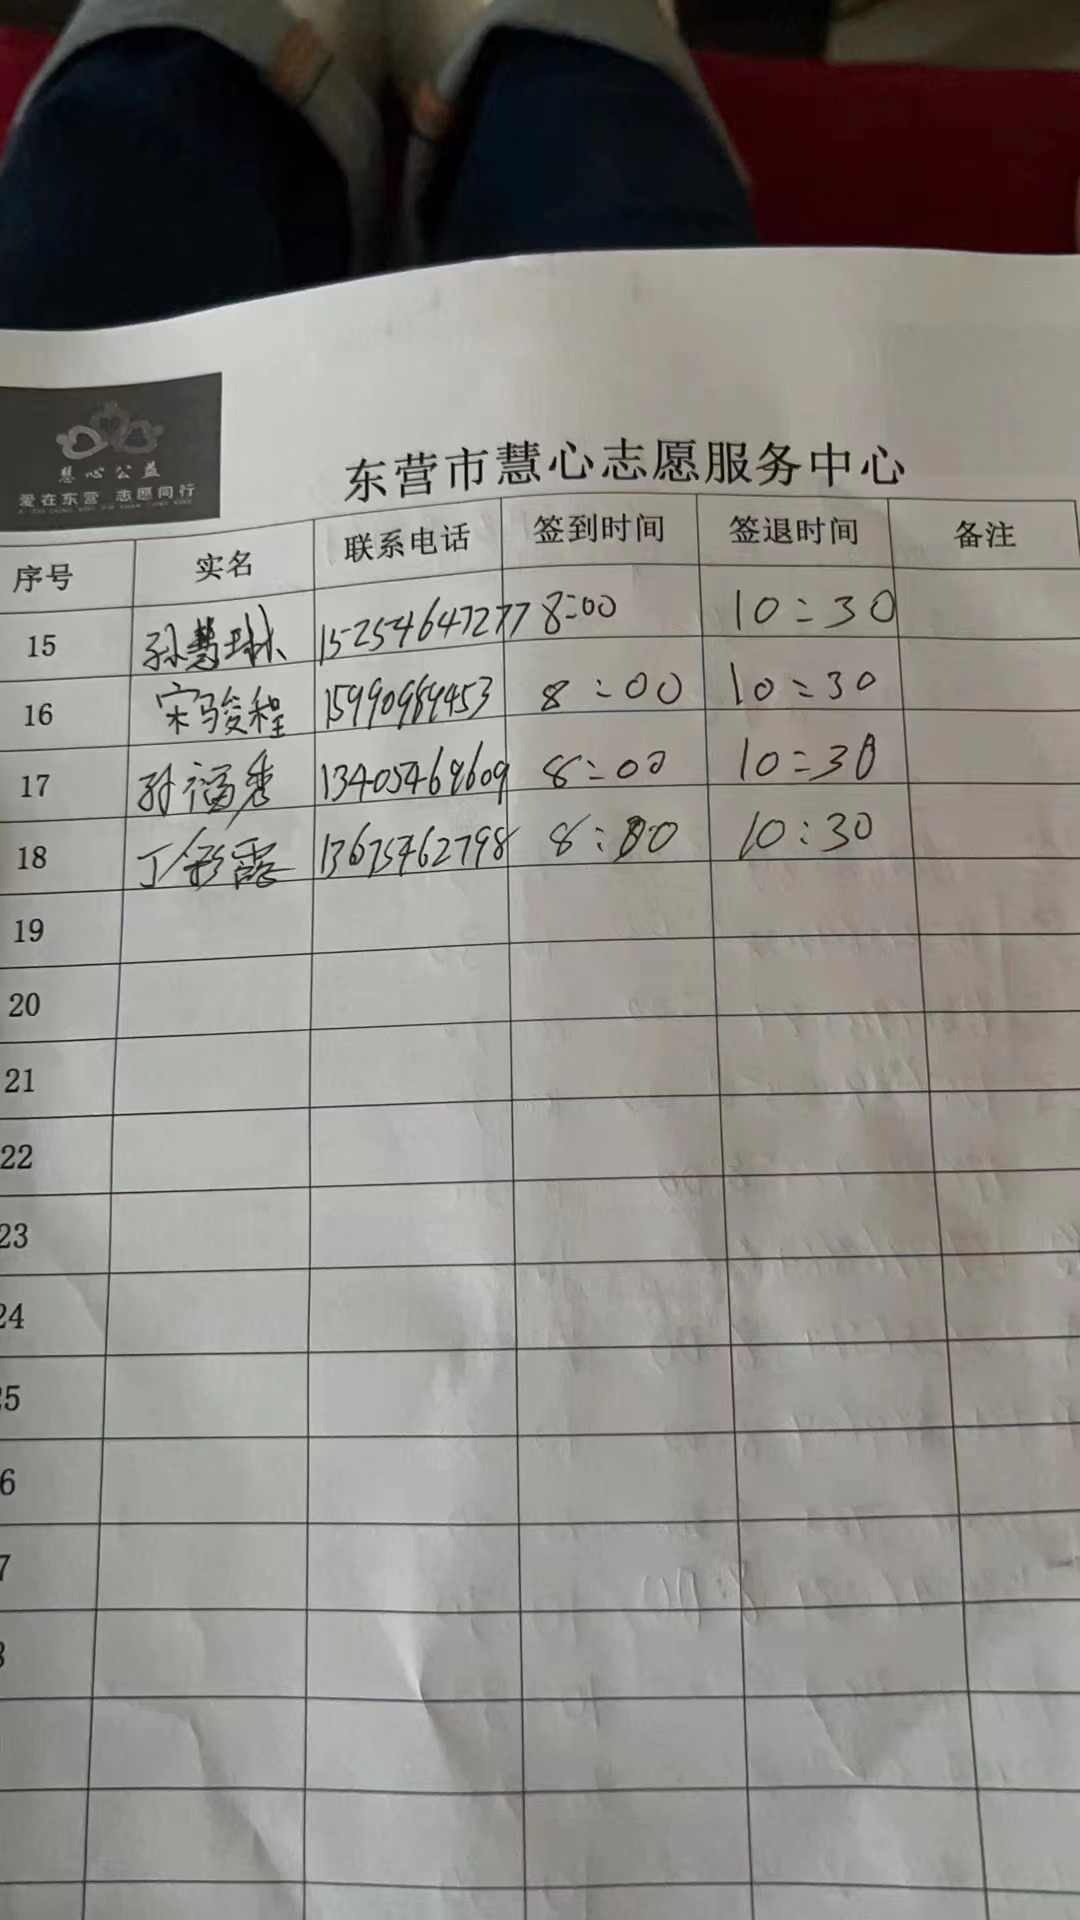 慧心公益
爱在东营 志愿同行
东营市慧心志愿服务中心
序号 实名 联系电话 签到时间 签退时间 备注
15 孙慧琳 15254647277 8:00 10:30
16 宋骏程 15990989453 8:00 10:30
17 孙福秀 13405469609 8:00 10:30
18 丁彩霞 13675462798 8:00 10:30
19
20
21
22
23
24
25
6
7